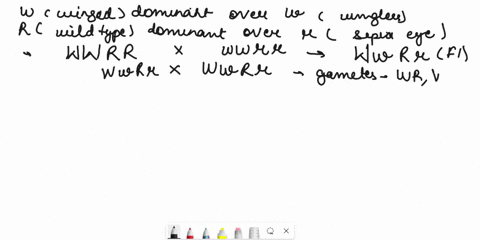 W (winged) dominant over w (wingless)
R (wild type) dominant over r (sepia eye)
→ WWRR × wwrr → WwRr (F1)
WwRr × WwRr → gametes - WR, V